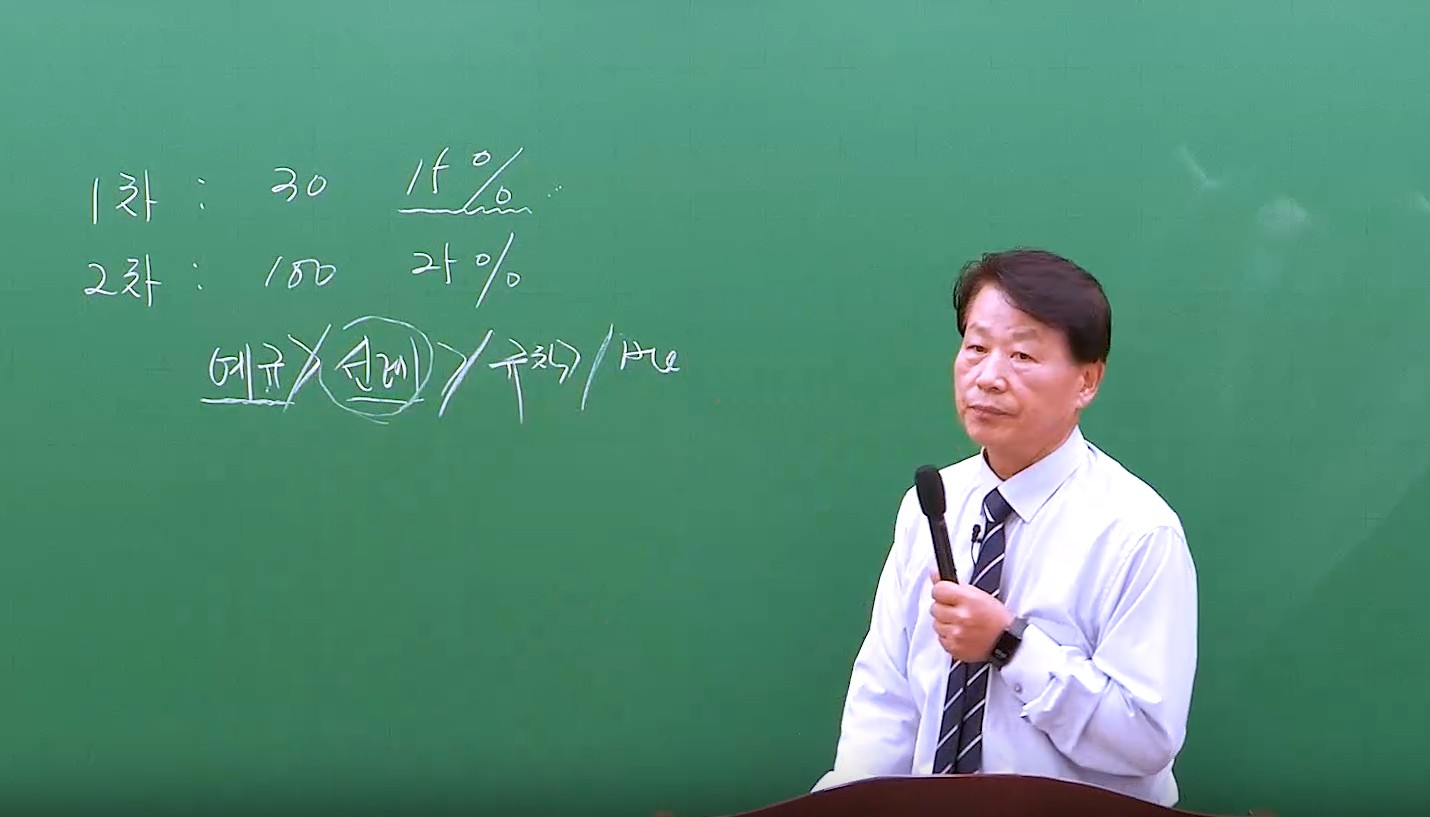 1차 : 30 15%
2차 : 100 25%
예규 > 선례 > / 규칙 /